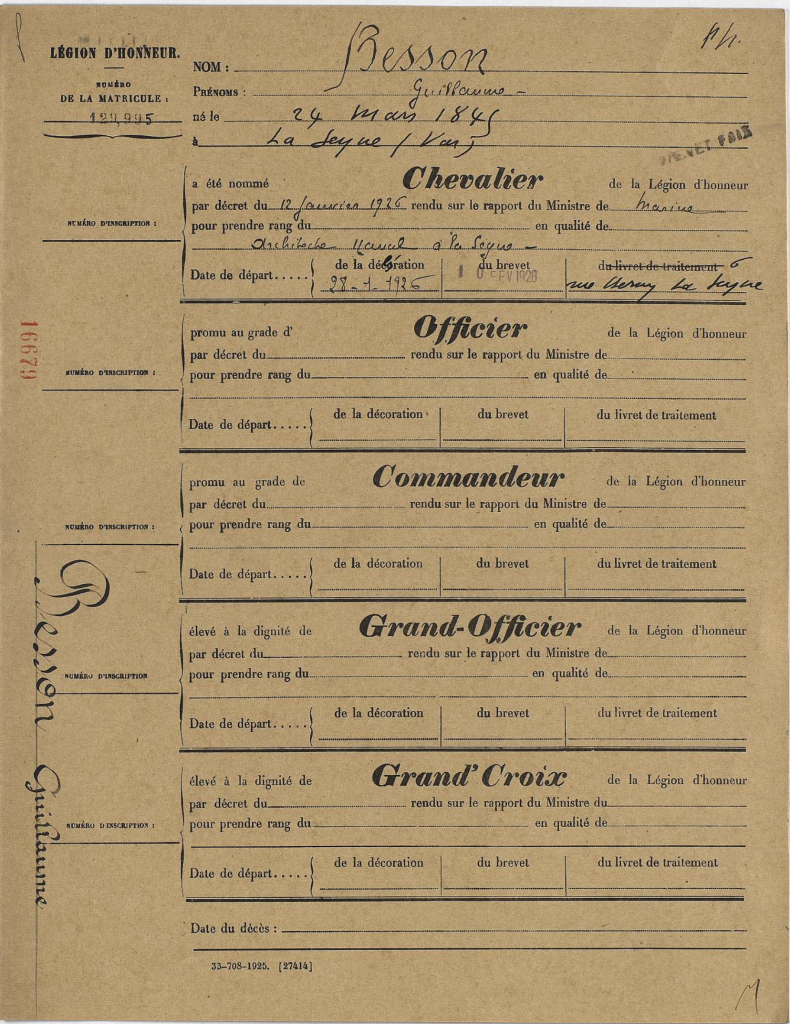 LÉGION D'HONNEUR.
NUMÉRO
DE LA MATRICULE :
129,995
NOM : Besson
PRÉNOMS : Guillaume
né le 24 Mars 1845
à La Seyne (Var)
BREVET FAIT
a été nommé Chevalier de la Légion d'honneur
par décret du 12 Janvier 1926 rendu sur le rapport du Ministre de Marine
NUMÉRO D'INSCRIPTION :
pour prendre rang du en qualité de
Architecte Naval à la Seyne
Date de départ..... de la décoration du brevet du livret de traitement
28-1-1926 10 FEV 1926 rue La Seyne
16679
promu au grade d' Officier de la Légion d'honneur
par décret du rendu sur le rapport du Ministre de
NUMÉRO D'INSCRIPTION :
pour prendre rang du en qualité de
Date de départ..... de la décoration du brevet du livret de traitement
promu au grade de Commandeur de la Légion d'honneur
par décret du rendu sur le rapport du Ministre de
NUMÉRO D'INSCRIPTION :
pour prendre rang du en qualité de
Date de départ..... de la décoration du brevet du livret de traitement
Besson Guillaume
élevé à la dignité de Grand-Officier de la Légion d'honneur
par décret du rendu sur le rapport du Ministre de
NUMÉRO D'INSCRIPTION
pour prendre rang du en qualité de
Date de départ..... de la décoration du brevet du livret de traitement
élevé à la dignité de Grand'Croix de la Légion d'honneur
par décret du rendu sur le rapport du Ministre du
NUMÉRO D'INSCRIPTION :
pour prendre rang du en qualité de
Date de départ..... de la décoration du brevet du livret de traitement
Date du décès :
33-708-1925. [27414]